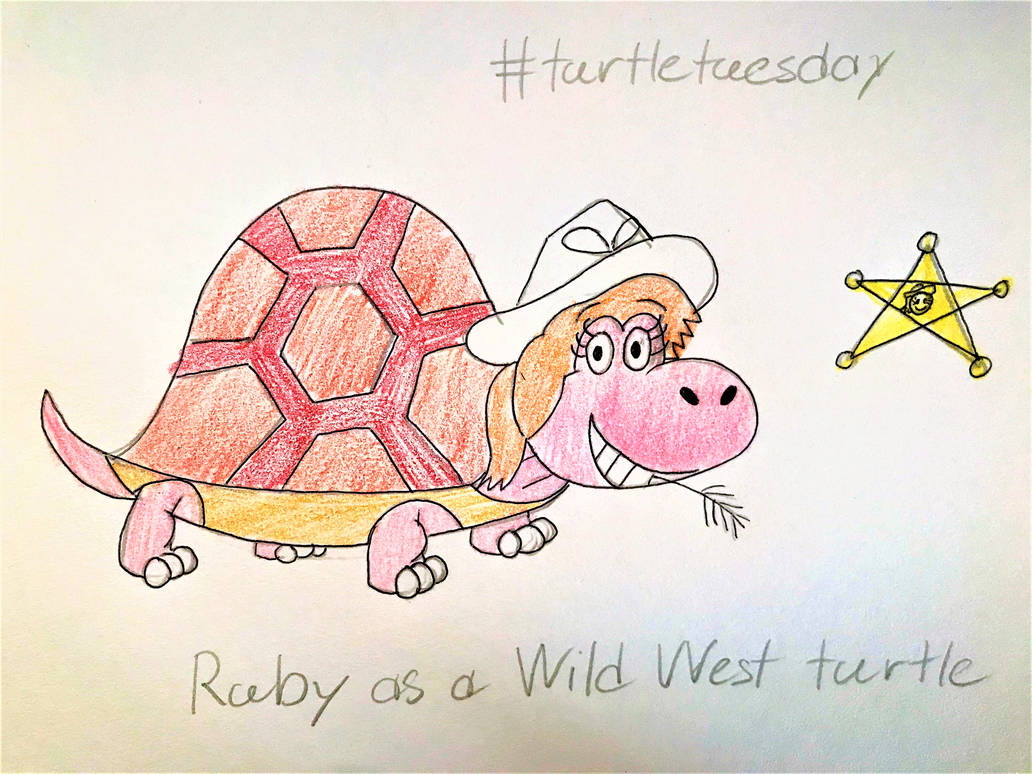 #turtletuesday
Ruby as a Wild West turtle